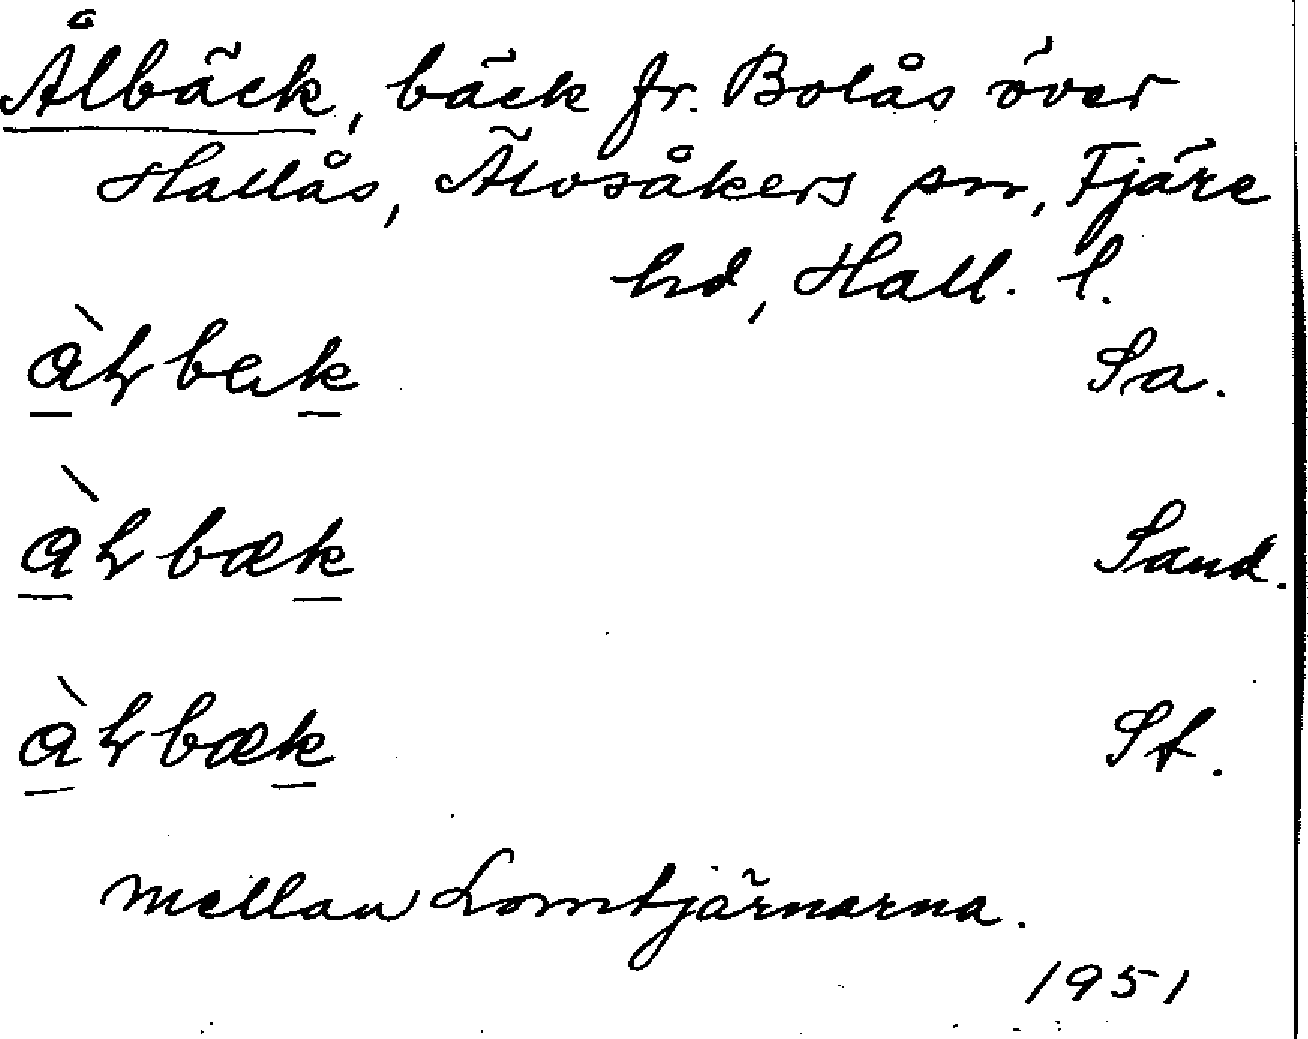 Ålbäck, bäck fr. Bolås över
Hallås, Älvsåkers sn, Fjäre
hd, Hall. l.
Sa.
àƚbæk Sand.
àƚbæk St.
mellan Lomtjärnarna.
1951